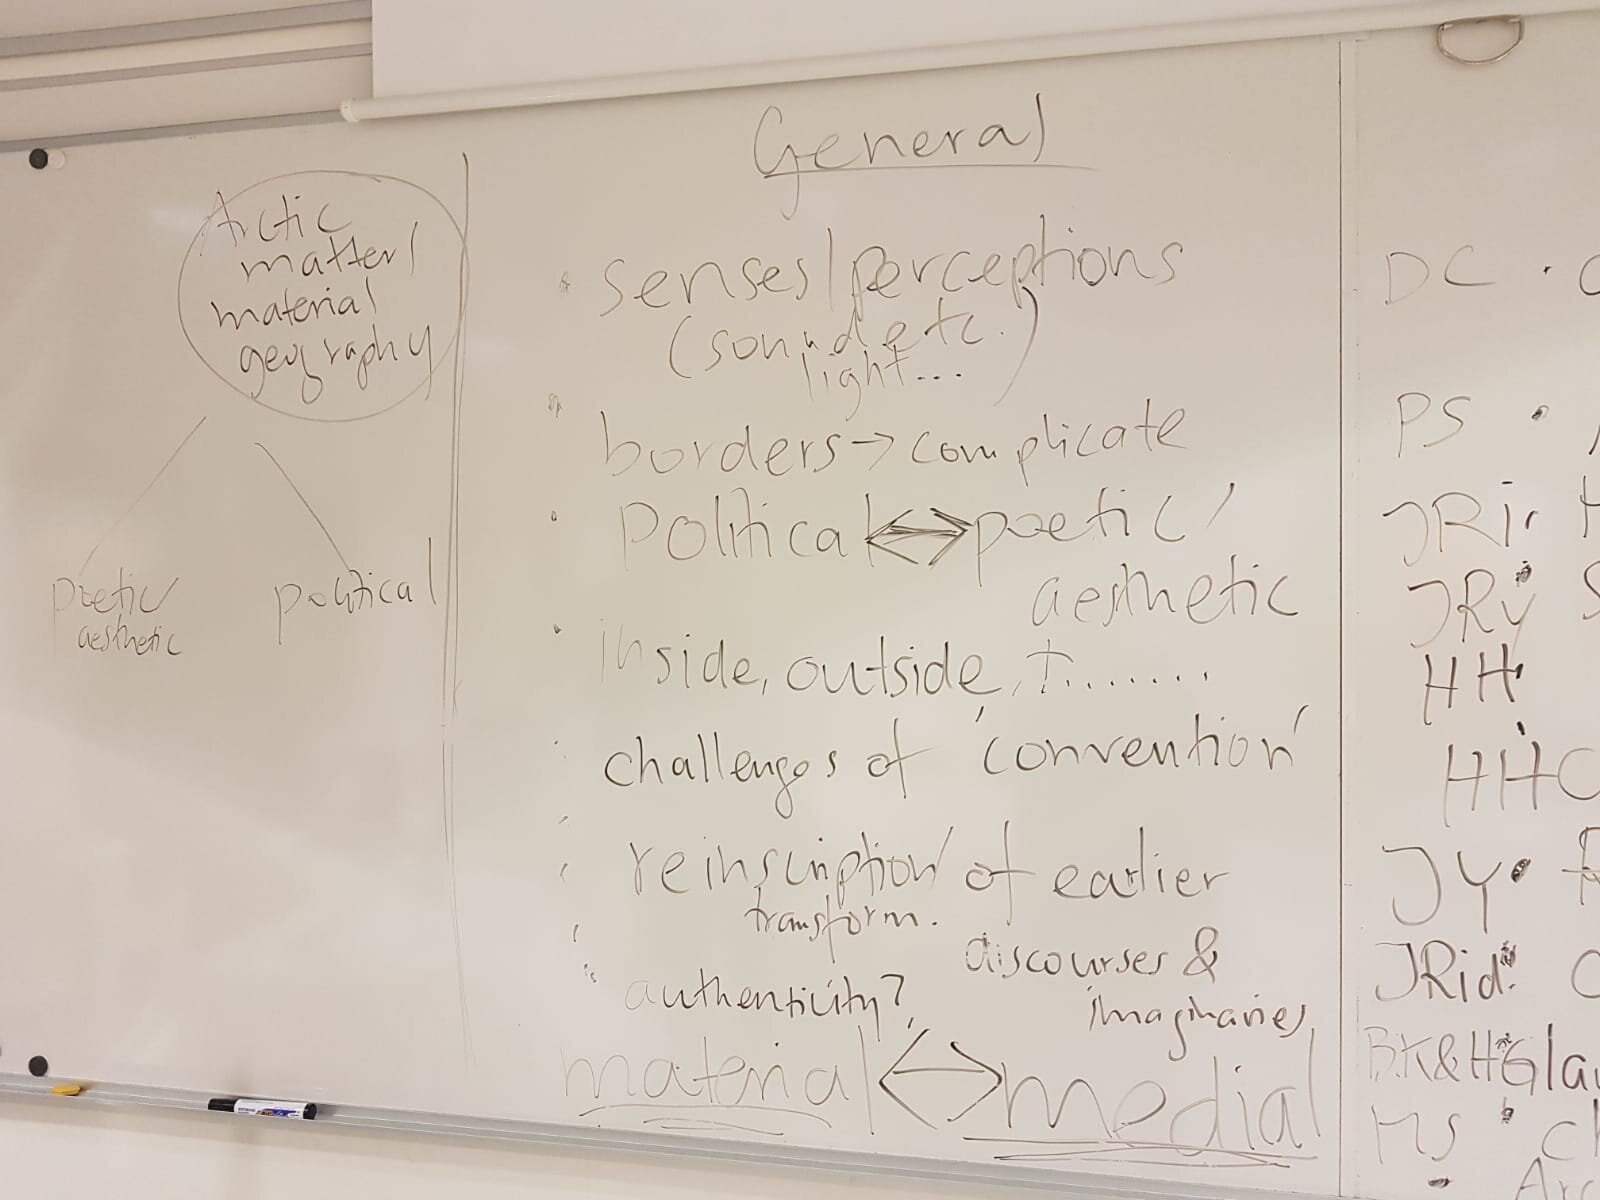 Arctic
matter/
material
geography
poetic/
aesthetic
political
General
senses/perceptions
(sound etc.)
light...
borders → complicate
Political ↔ poetic/
aesthetic
inside, outside, +.......
challenges of 'convention'
reinscription/ of earlier
transform.
discourses &
imaginaries
authenticity?
material ↔ medial
DC ·
PS ·
JRi
JRy
HH
HHC
JY ·
JRid.
BK&H Glau
MS · Ch
· Arc